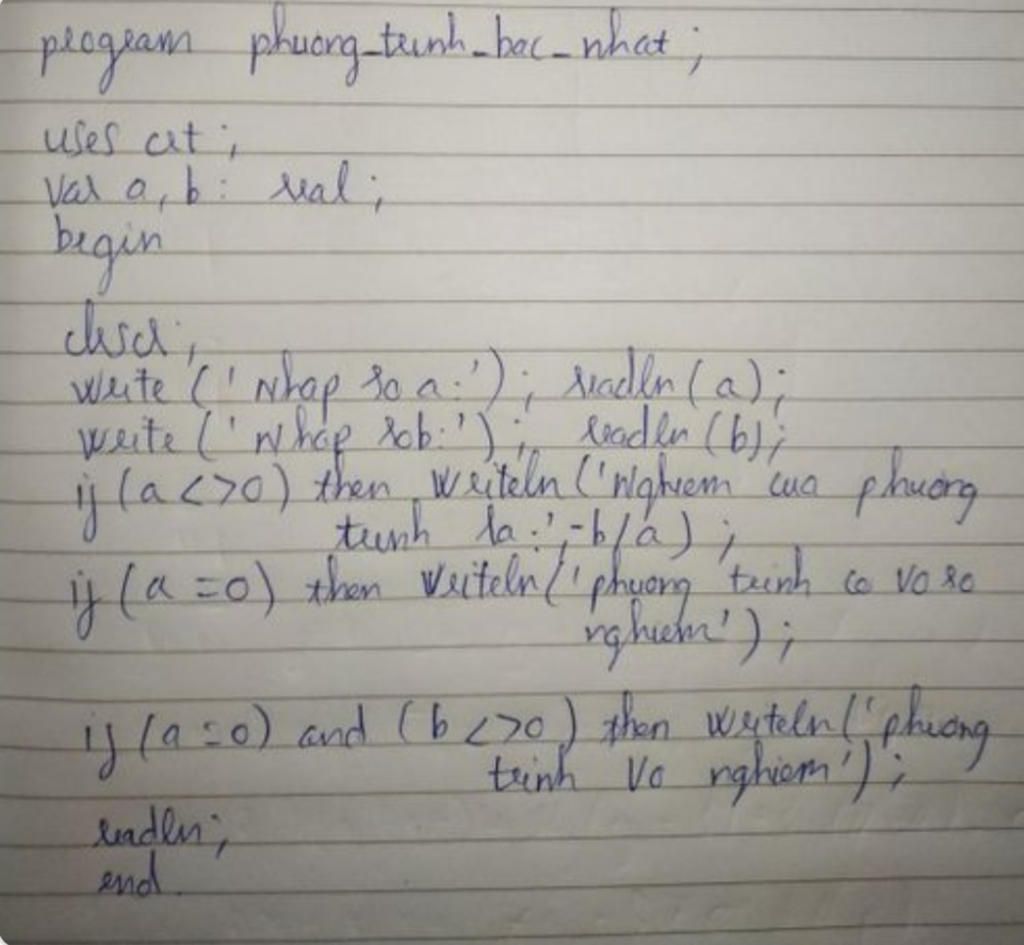 program phuong_trinh_bac_nhat;
uses crt;
var a, b: real;
begin
clrscr;
write ('Nhap so a:'); readln (a);
write ('Nhap sob:'); readln (b);
if (a <>0) then writeln ('Nghiem cua phuong
trinh la:', -b/a);
if (a =0) then writeln ('phuong trinh co vo so
nghiem');
if (a=0) and (b <>0) then writeln ('phuong
trinh vo nghiem');
readln;
end.